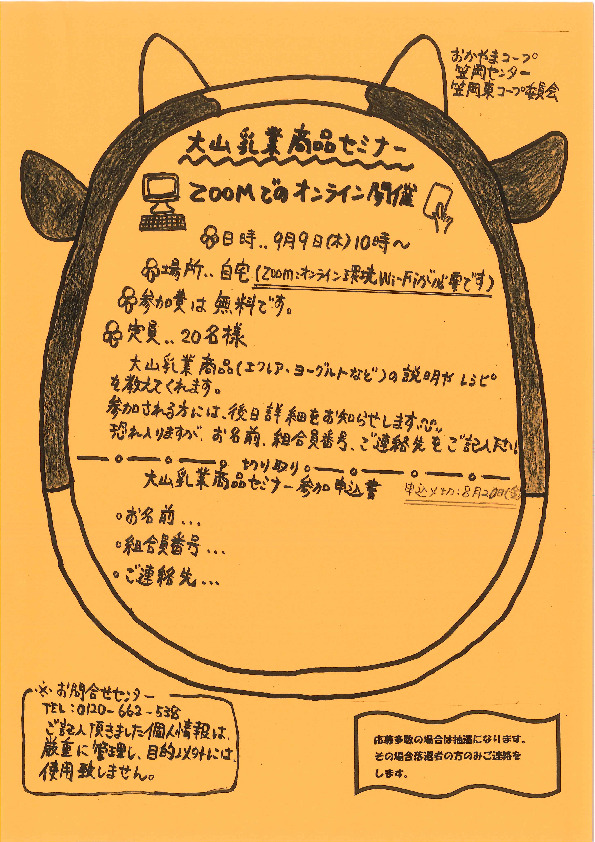 おかやまコープ
笠岡センター
笠岡東コープ委員会
大山乳業商品セミナー
ZOOMでのオンライン開催
日時‥9月9日(木)10時～
場所‥自宅(Zoom:オンライン環境Wi-Fiが必要です)
参加費は無料です。
定員‥20名様
大山乳業商品(エフレア・ヨーグルトなど)の説明やレシピ
を教えてくれます。
参加される方には、後日詳細をお知らせします。
恐れ入りますが、お名前、組合員番号、ご連絡先をご記入下さい
切り取り
大山乳業商品セミナー参加申込書
申込〆切:8月20日(金)
お名前…
組合員番号…
ご連絡先…
※お問合せセンター
TEL:0120-662-538
ご記入頂きました個人情報は、
厳重に管理し、目的以外には
使用致しません。
応募多数の場合は抽選になります。
その場合落選者の方のみご連絡を
します。